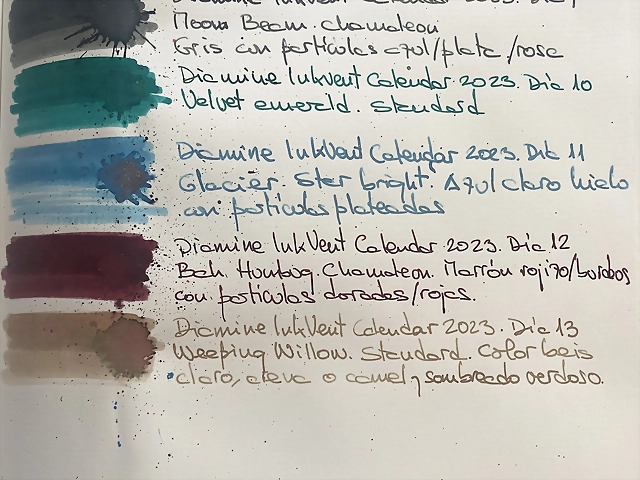 Diamine InkVent Calendar 2023. Día 9
Moon Beam. Chamaleon
Gris con partículas azul/plata/rosa
Diamine InkVent Calendar 2023. Día 10
Velvet emerald. Standard
Diamine InkVent Calendar 2023. Día 11
Glacier. Star bright. Azul claro hielo
con partículas plateadas
Diamine InkVent Calendar 2023. Día 12
Bah. Humbug. Chamaleon. Marrón rojizo/burdeos
con partículas doradas/rojas.
Diamine InkVent Calendar 2023. Día 13
Weeping Willow. Standard. Color beis
claro, arena o camel y sombreado verdoso.